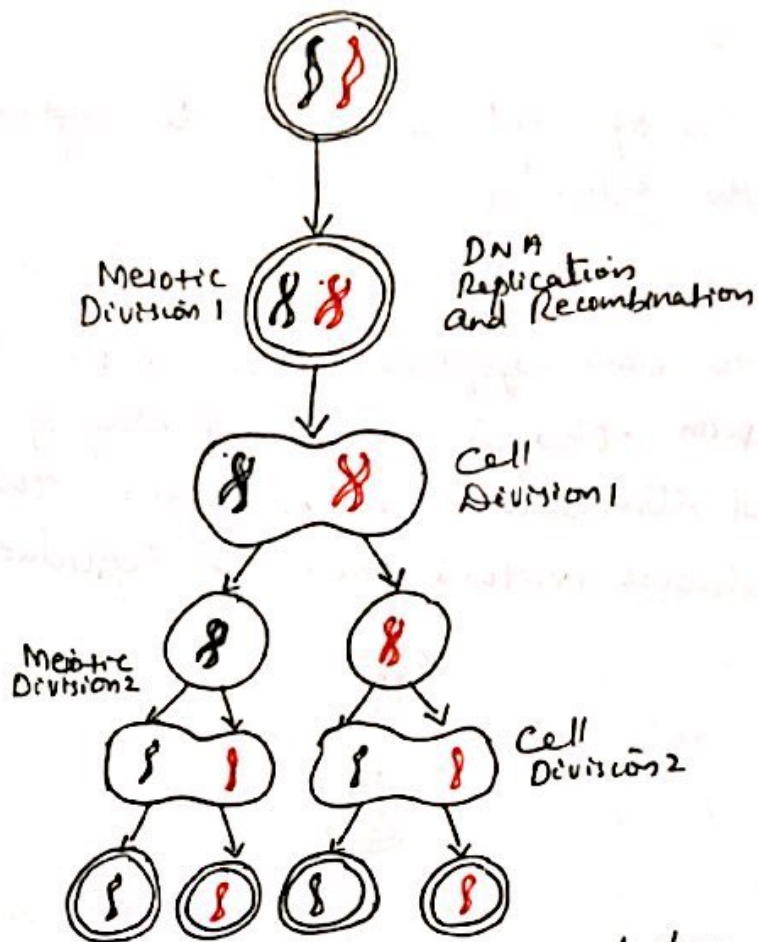 Meiotic
Division 1
DNA
Replication
and Recombination
Cell
Division 1
Meiotic
Division 2
Cell
Division 2